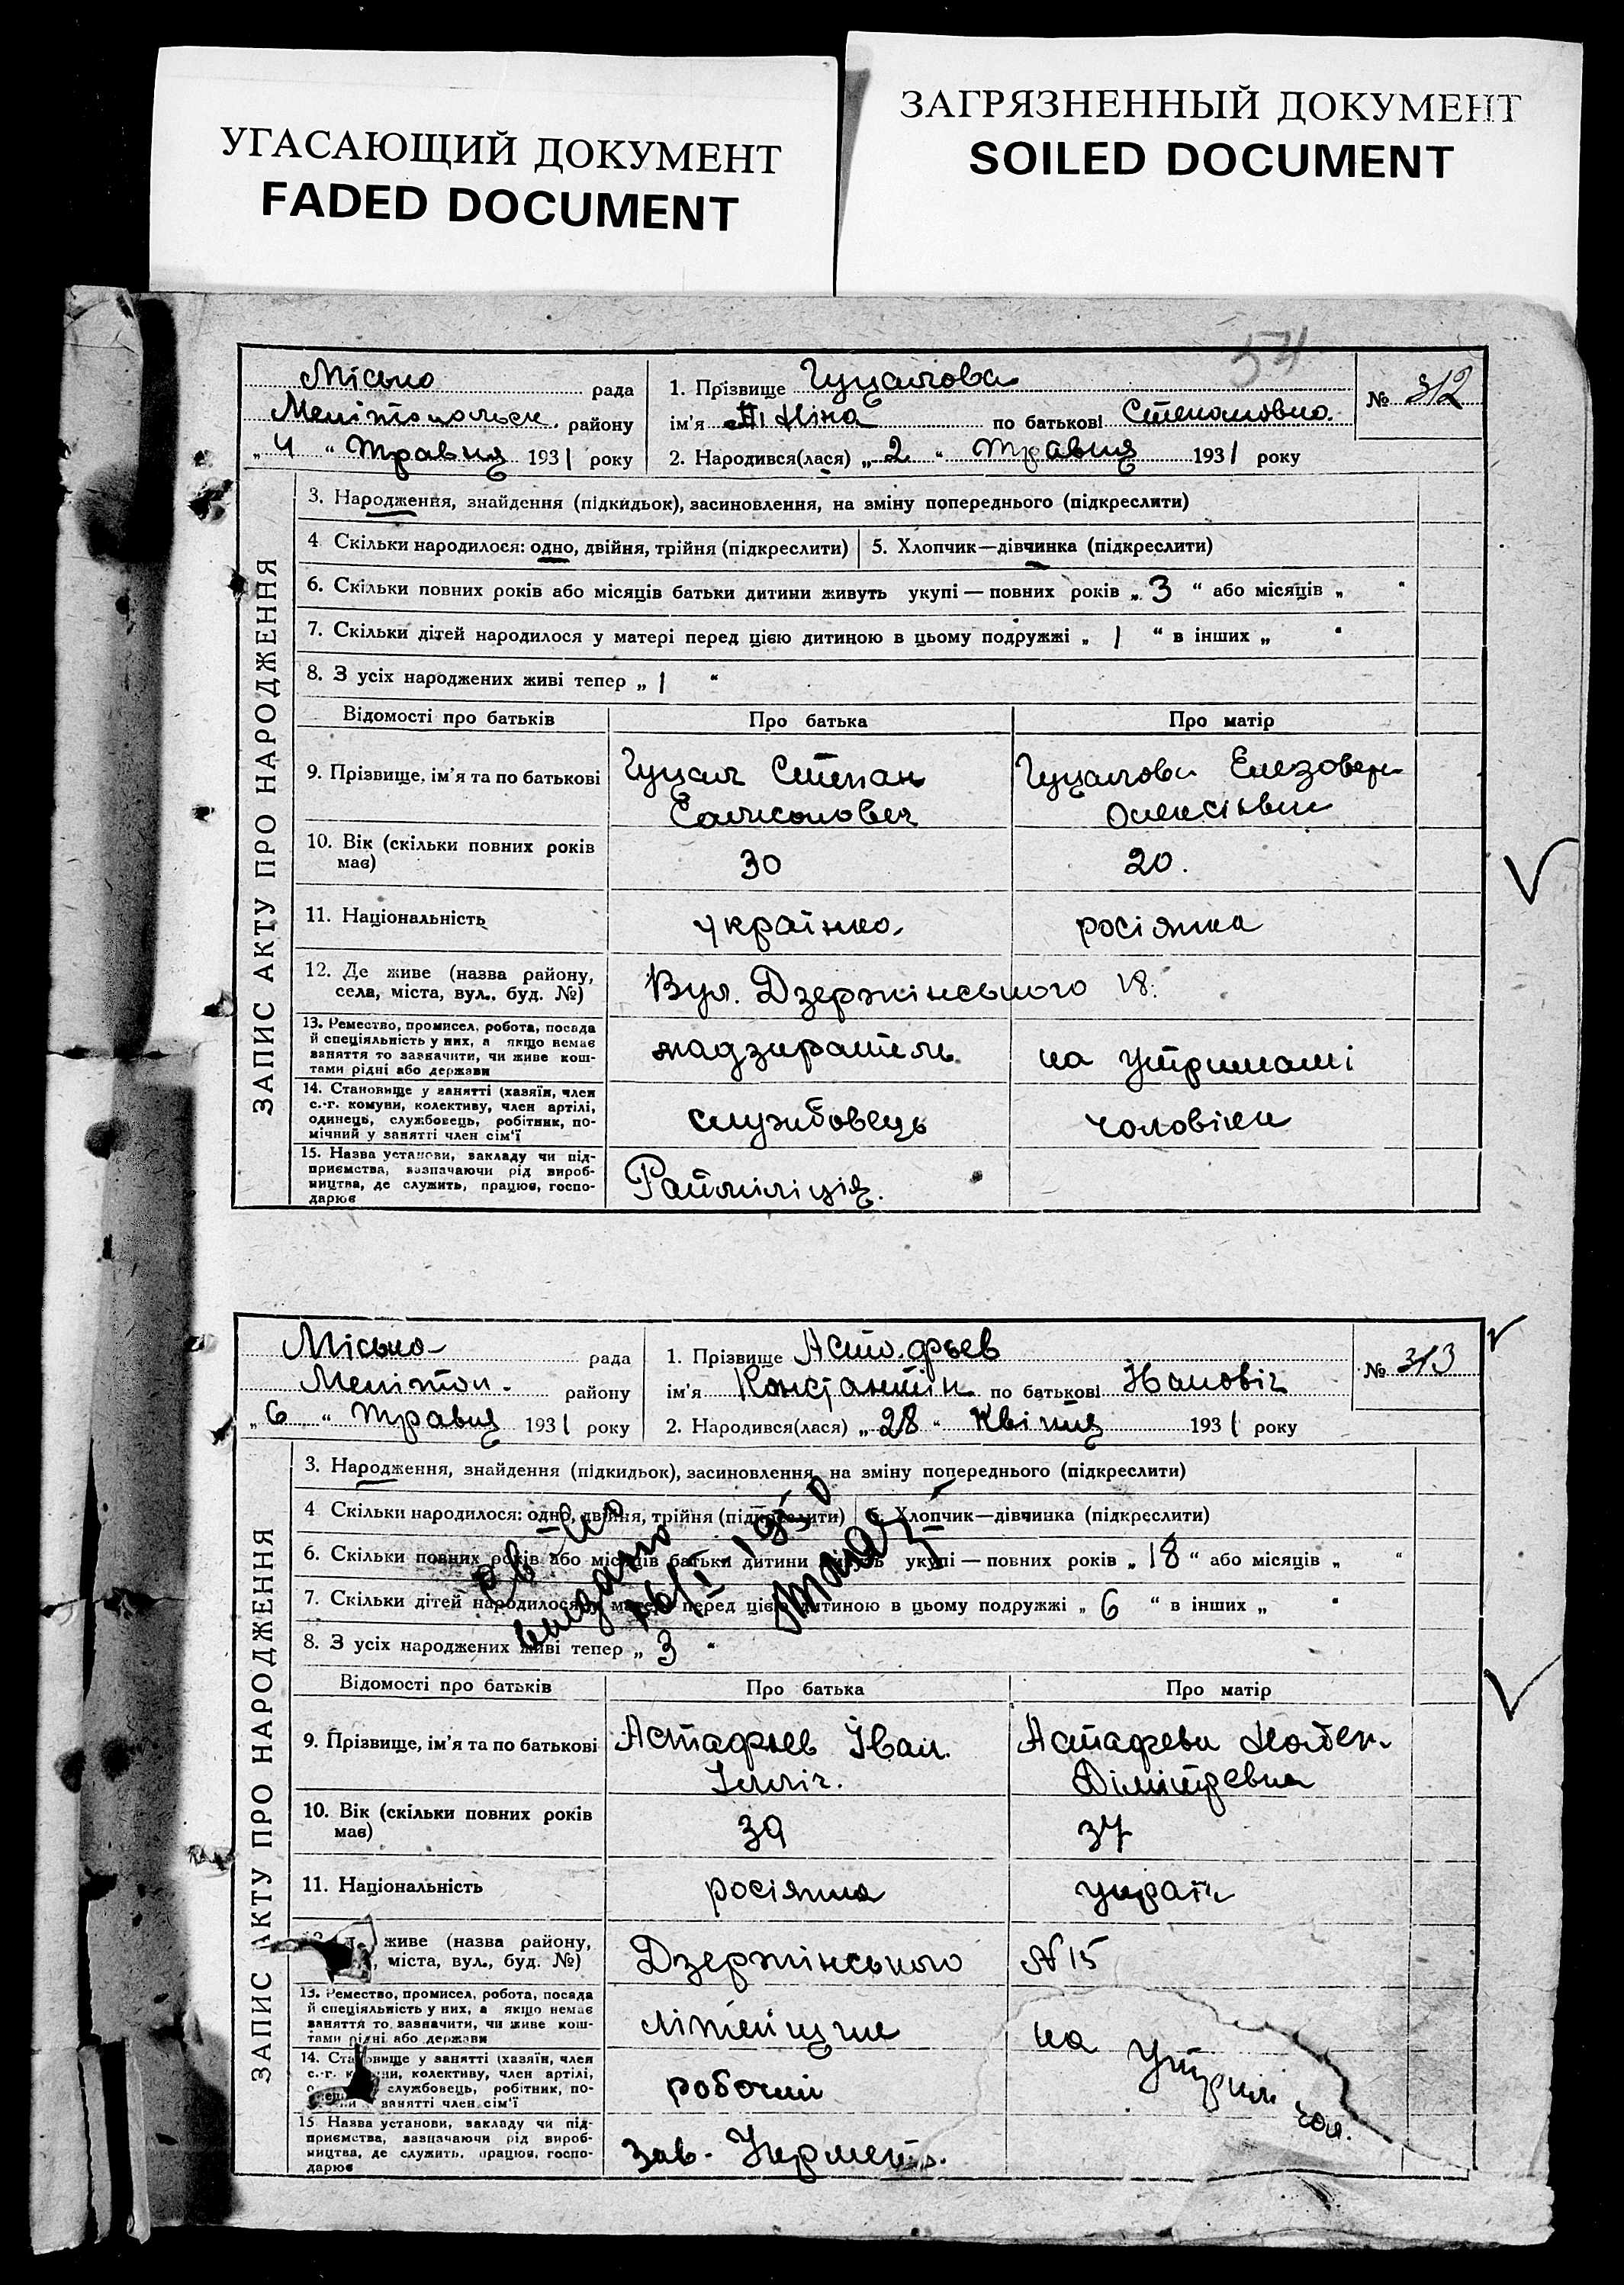 УГАСАЮЩИЙ ДОКУМЕНТ
FADED DOCUMENT
ЗАГРЯЗНЕННЫЙ ДОКУМЕНТ
SOILED DOCUMENT
54
ЗАПИС АКТУ ПРО НАРОДЖЕННЯ
Місько рада
Мелітопольск. району
„ 4 “ Травня 1931 року
1. Прізвище Гуцалова
ім'я Ніна по батькові Степановна
№ 312
2. Народився(лася) „ 2 “ Травня 1931 року
3. Народження, знайдення (підкидьок), засиновлення, на зміну попереднього (підкреслити)
4 Скільки народилося: одно, двійня, трійня (підкреслити) 5. Хлопчик—дівчинка (підкреслити)
6. Скільки повних років або місяців батьки дитини живуть укупі — повних років „ 3 “ або місяців „ “
7. Скільки дітей народилося у матері перед цією дитиною в цьому подружжі „ 1 “ в інших „ “
8. З усіх народжених живі тепер „ 1 “
Відомості про батьків Про батька Про матір
9. Прізвище, ім'я та по батькові Гуцал Степан Гуцалова Елезовет
Самсонович Олексіївна
10. Вік (скільки повних років має) 30 20.
11. Національність українка росіянка
12. Де живе (назва району, села, міста, вул., буд. №) Вул. Дзержінського 18.
13. Ремество, промисел, робота, посада й спеціяльність у них, а якщо немає заняття то зазначити, чи живе коштами рідні або держави надзиратель на утриманні
14. Становище у занятті (хазяїн, член с.-г. комуни, колективу, член артілі, одинець, службовець, робітник, помічний у занятті член сім'ї службовець чоловіка
15. Назва установи, закладу чи підприємства, зазначаючи рід виробництва, де служить, працює, господарює Райміліція.
ЗАПИС АКТУ ПРО НАРОДЖЕННЯ
Місько рада
Мелітоп. району
„ 6 “ Травня 1931 року
1. Прізвище Астафьев
ім'я Константін по батькові Іванович
№ 313
2. Народився(лася) „ 28 “ Квітня 1931 року
3. Народження, знайдення (підкидьок), засиновлення, на зміну попереднього (підкреслити)
4 Скільки народилося: одно, двійня, трійня (підкреслити) 5. Хлопчик—дівчинка (підкреслити)
6. Скільки повних років або місяців батьки дитини живуть укупі — повних років „ 18 “ або місяців „ “
7. Скільки дітей народилося у матері перед цією дитиною в цьому подружжі „ 6 “ в інших „ “
8. З усіх народжених живі тепер „ 3 “
Відомості про батьків Про батька Про матір
9. Прізвище, ім'я та по батькові Астафьев Іван Астафева
Ілліч. Дімітревна
10. Вік (скільки повних років має) 39 37
11. Національність росіянка
живе (назва району, міста, вул., буд. №) Дзержінського № 15
13. Ремество, промисел, робота, посада й спеціяльність у них, а якщо немає заняття то зазначити, чи живе коштами рідні або держави літейщик на утрим.
14. Становище у занятті (хазяїн, член с.-г. комуни, колективу, член артілі, службовець, робітник, помічний у занятті член сім'ї робочий чол.
15 Назва установи, закладу чи підприємства, зазначаючи рід виробництва, де служить, працює, господарює зав.